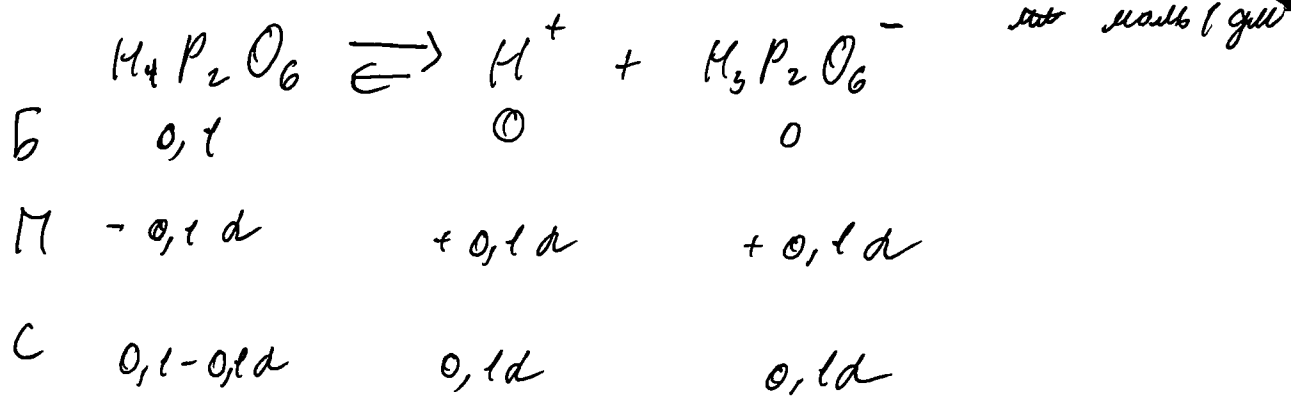 H₄P₂O₆ ⇌ H⁺ + H₃P₂O₆⁻ моль/дм
Б 0,1 0 0
П - 0,1α + 0,1α + 0,1α
С 0,1-0,1α 0,1α 0,1α